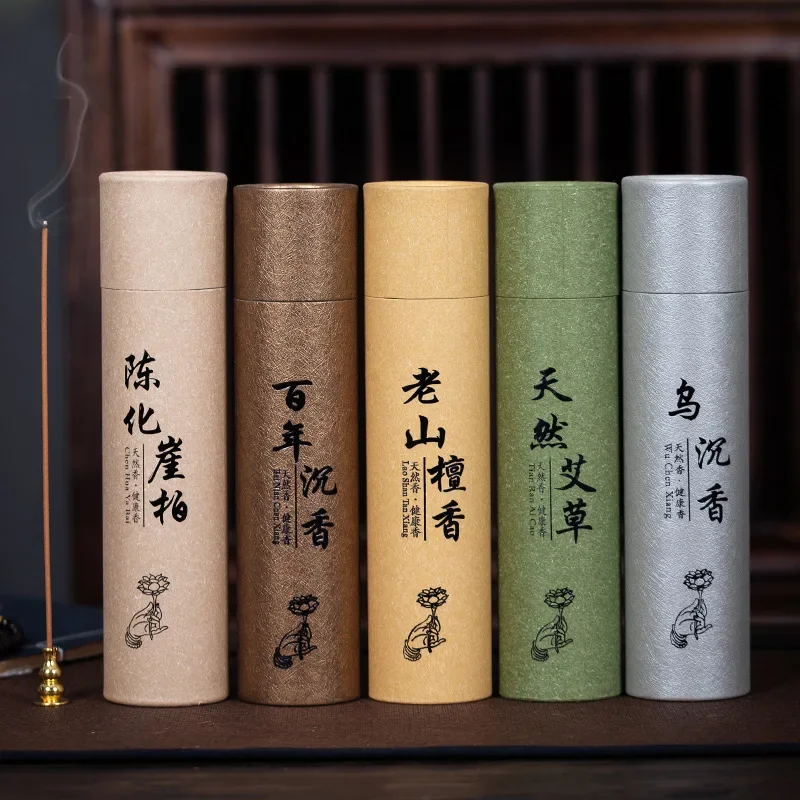 陈化崖柏
天然香·健康香
Chen Hua Ya Bai
百年沉香
天然香·健康香
Bai Nian Chen Xiang
老山檀香
天然香·健康香
Lao Shan Tan Xiang
天然艾草
天然香·健康香
Tian Ran Ai Cao
乌沉香
天然香·健康香
Wu Chen Xiang